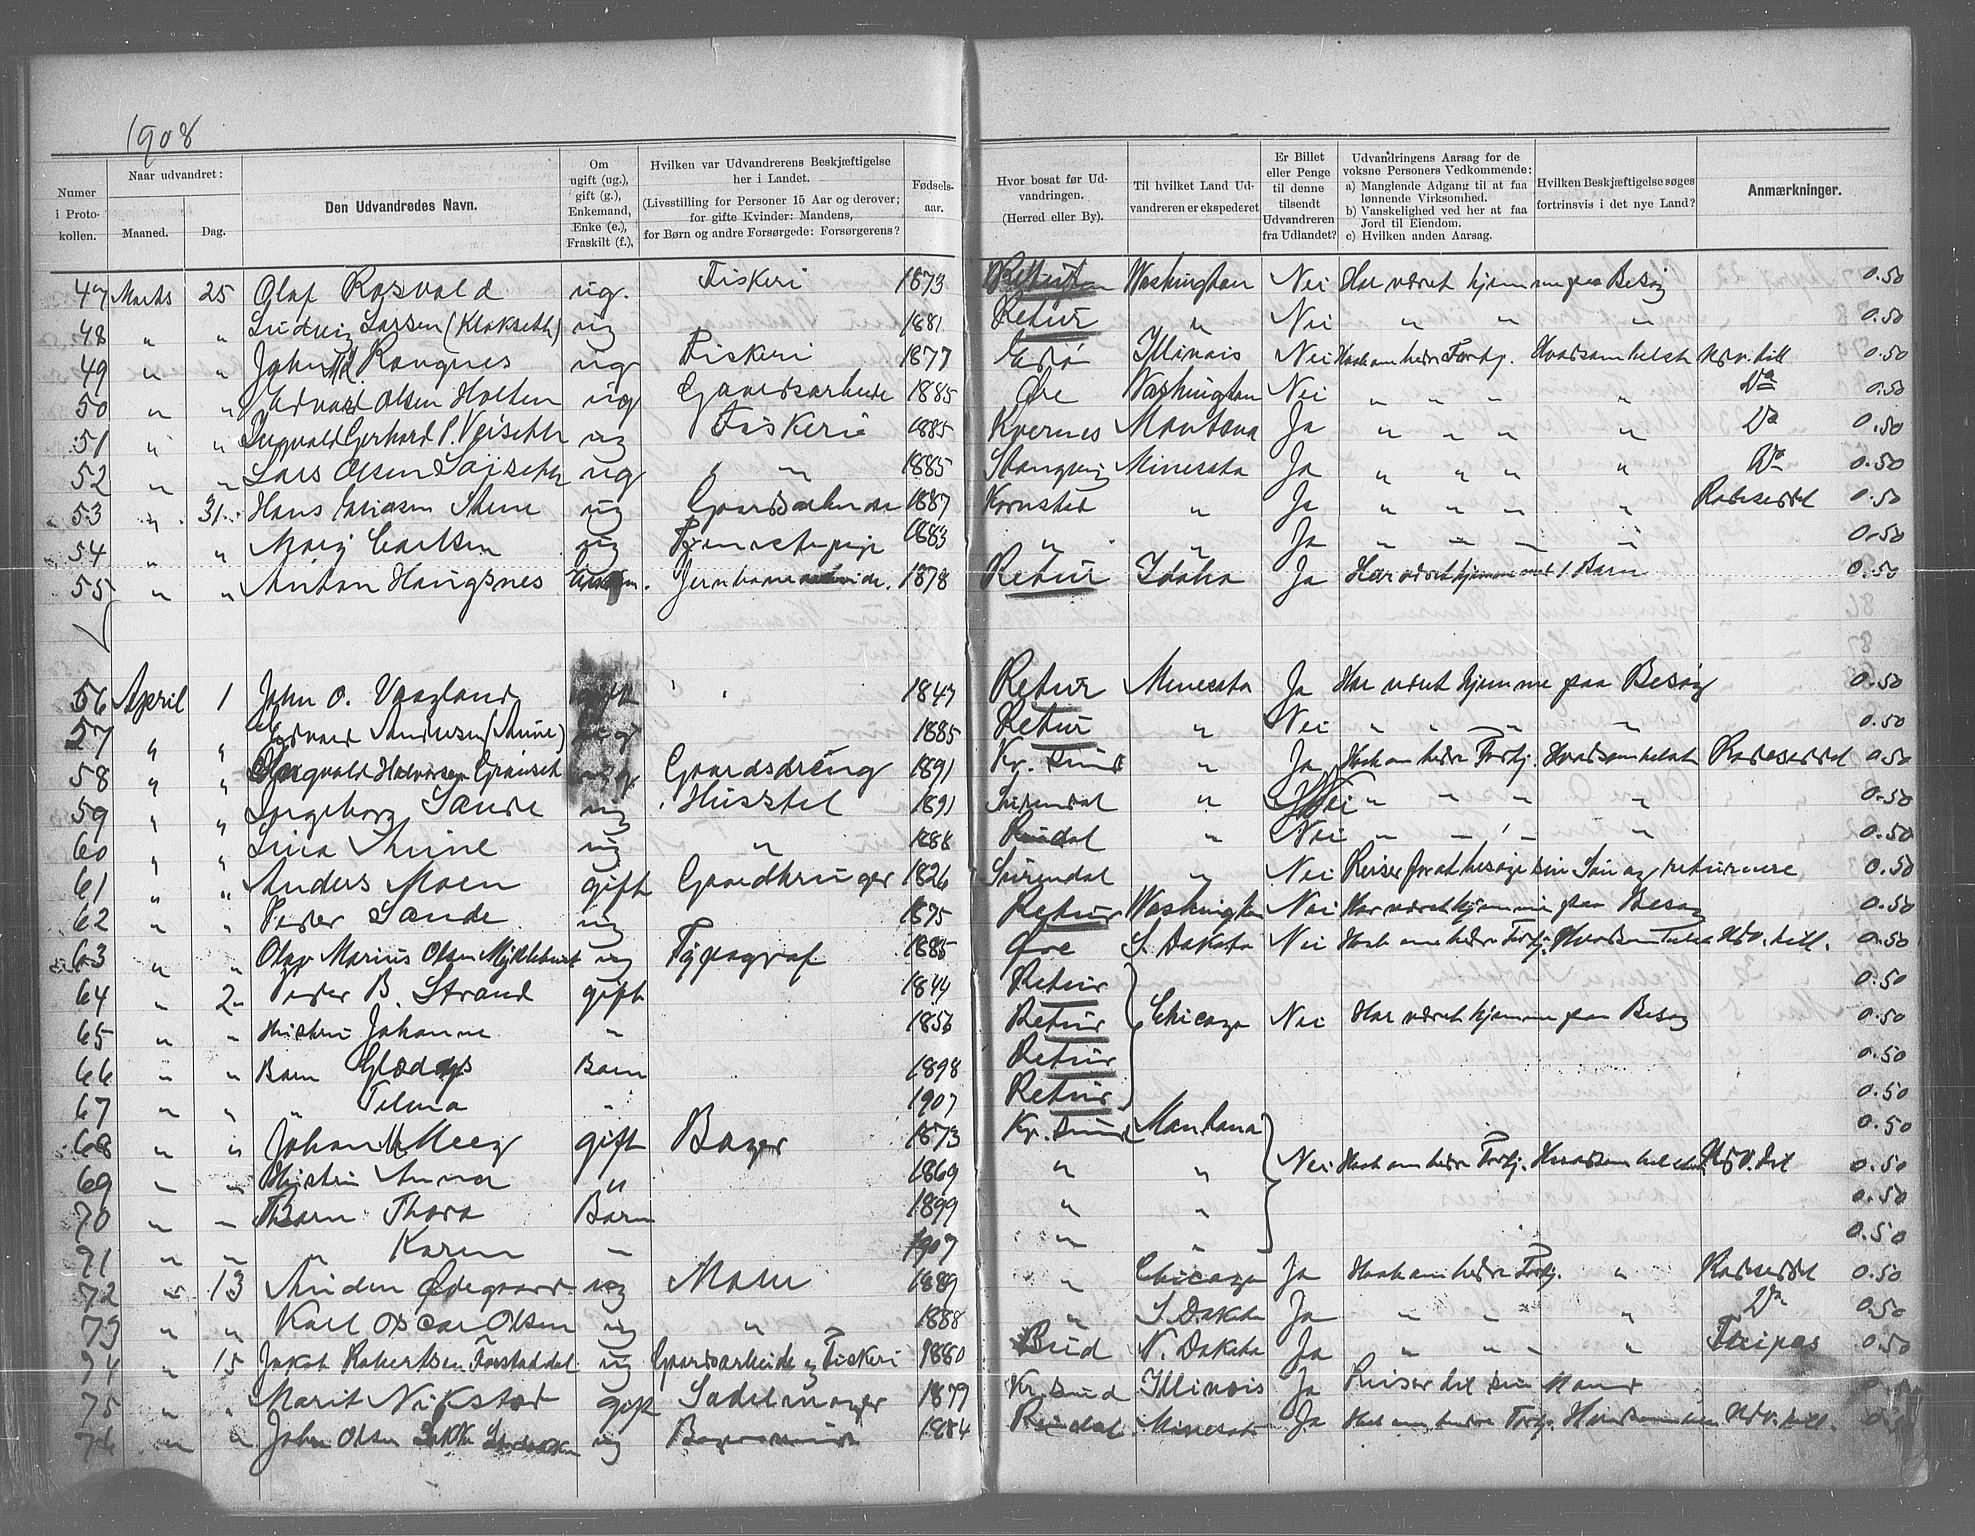 1908
Numer i Protokollen.
Naar udvandret:
Maaned.
Dag.
Den Udvandredes Navn.
Om ugift (ug.), gift (g.), Enkemand, Enke (e.), Fraskilt (f.),
Hvilken var Udvandrerens Beskjæftigelse her i Landet.
(Livsstilling for Personer 15 Aar og derover; for gifte Kvinder: Mandens, for Børn og andre Forsørgede: Forsørgerens?
Fødselsaar.
Hvor bosat før Udvandringen.
(Herred eller By).
Til hvilket Land Udvandreren er ekspederet
Er Billet eller Penge til denne tilsendt Udvandreren fra Udlandet?
Udvandringens Aarsag for de voksne Personers Vedkommende:
a) Manglende Adgang til at faa lønnende Virksomhed.
b) Vanskelighed ved her at faa Jord til Eiendom.
c) Hvilken anden Aarsag.
Hvilken Beskjæftigelse søges fortrinsvis i det nye Land?
Anmærkninger.
47 Marts 25 Olaf Rosvold ug. Fiskeri 1873 Washington Nei Har været hjemme paa Besøg 0.50
48 " " Ludvig Larsen (Klokseth) ug 1881 Retur " Nei " " " 0.50
49 " " John Rongnes ug Fiskeri 1877 Edø Illinois Nei Haab om bedre Fortj. Hvadsomhelst Udv. till 0.50
50 " " Edvard Olsen Holten ug Gaardsarbeide 1885 Øre Washington Nei " " " " Do 0.50
51 " " Ingvald Gerhard P. Veiseth ug Fiskeri 1885 Kvernes Montana Ja " " " " Do 0.50
52 " " Lars Olsen ug " " 1885 Stangvig Minesota Ja " " " " Do 0.50
53 " 31 Hans ug Gaardsarbeide 1887 Kornsted " Ja " " " " Rabseddel 0.50
54 " " Carlsen ug Tjenestepige 1883 " " Ja " " " " 0.50
55 " " Anton Haugsnes Jernbanearbeide. 1878 Retur Idaho Ja Har været hjemme med 1 Barn 0.50
56 April 1 John O. Vaagland gift " " 1847 Retur Minesota Ja Har været hjemme paa Besøg 0.50
57 " " Edvard Andersen ug 1885 Retur " Nei " " " " 0.50
58 " " Halvorsen ug Gaardsdreng 1891 Kr. sund " Ja Haab om bedre Fortj. Hvadsomhelst Rabseddel 0.50
59 " " Ingeborg Sande ug Husstel 1891 Surendal " Nei " " " " 0.50
60 " " ug " 1888 Rindal " Nei " " " " 0.50
61 " " Anders Moen gift Gaardbruger 1826 Surendal " Nei Reiser for at besøge sin Søn og returnere 0.50
62 " " Peder Sande ug 1875 Retur Washington Nei Har været hjemme paa Besøg 0.50
63 " " Olaf Marius Olsen Myklebust ug Typograf 1885 Øre S. Dakota Nei Haab om bedre Fortj. Hvadsomhelst Udv. till. 0.50
64 " 2 Peder B. Strand gift 1844 Retur 0.50
65 " " Hustru Johanne " 1856 Retur Chicago Nei Har været hjemme paa Besøg 0.50
66 " " Barn Gladys Barn 1898 Retur 0.50
67 " " " Telma " 1907 Retur 0.50
68 " " Johan M Meeg gift Bager 1873 Kr. sund Montana 0.50
69 " " Hustru Anna " 1869 " " Nei Haab om bedre Fortj. Hvadsomhelst Udv. till 0.50
70 " " Barn Thora Barn 1899 " " 0.50
71 " " " Karen " 1907 " " 0.50
72 " 13 Ødegaard ug Maler 1889 " Chicago Ja Haab om bedre Fortj. " Rabseddel 0.50
73 " " Karl Oscar Olsen ug " 1888 " S. Dakota Ja " " " Do 0.50
74 " 15 Jakob Robertsen Farstaddal ug Gaardsarbeide og Fiskeri 1880 Bud N. Dakota Ja " " " " Fripas 0.50
75 " " Marit Nikstad gift Sadelmager 1879 Kr. sund Illinois Ja Reiser til sin Mand
76 " " John Olsen ug 1884 Rindal Minesota Ja Haab om bedre Fortj. Hvadsomhelst Udv. till.